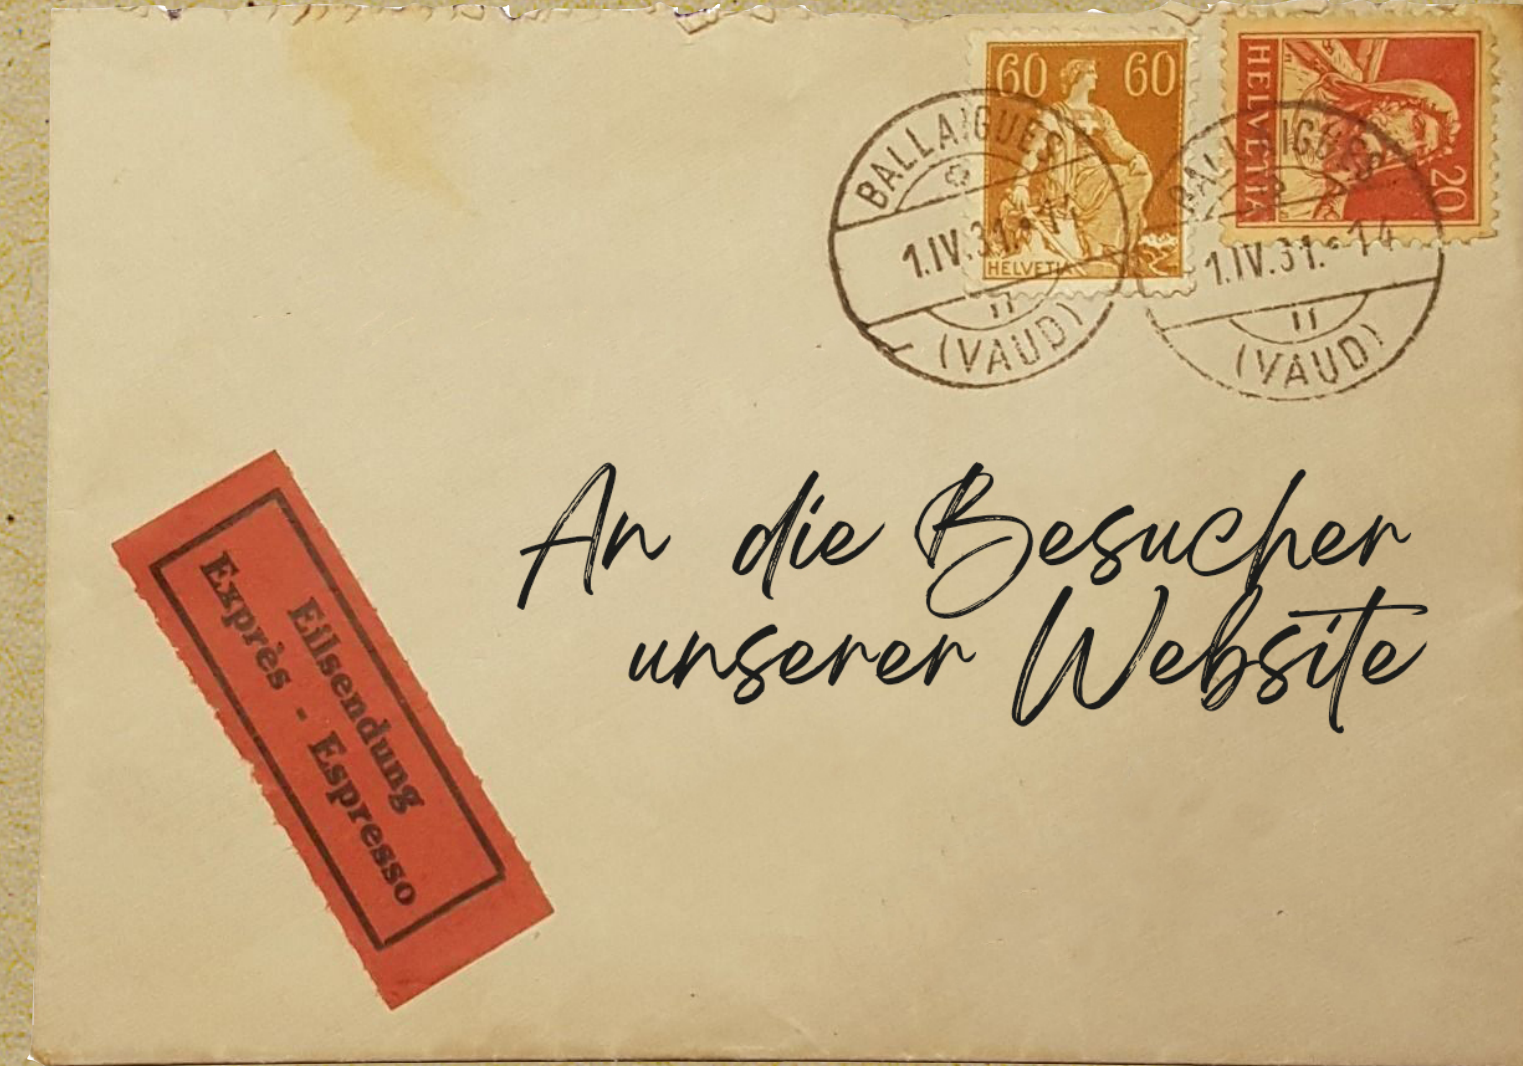 60 60
HELVETIA
HELVETIA
20
BALLAIGUES
1.IV.31.-14
(VAUD)
BALLAIGUES
1.IV.31.-14
(VAUD)
An die Besucher
unserer Website
Eilsendung
Exprès - Espresso